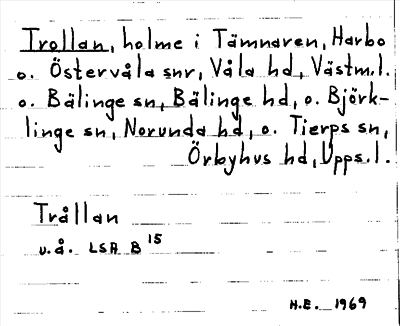 Trollan, holme i Tämnaren, Harbo
o. Östervåla snr, Våla hd, Västm.l.
o. Bälinge sn, Bälinge hd, o. Björk-
linge sn, Norunda hd, o. Tierps sn,
Örbyhus hd, Upps.l.
Trållan
u.å. LSA B 15
H.E. 1969